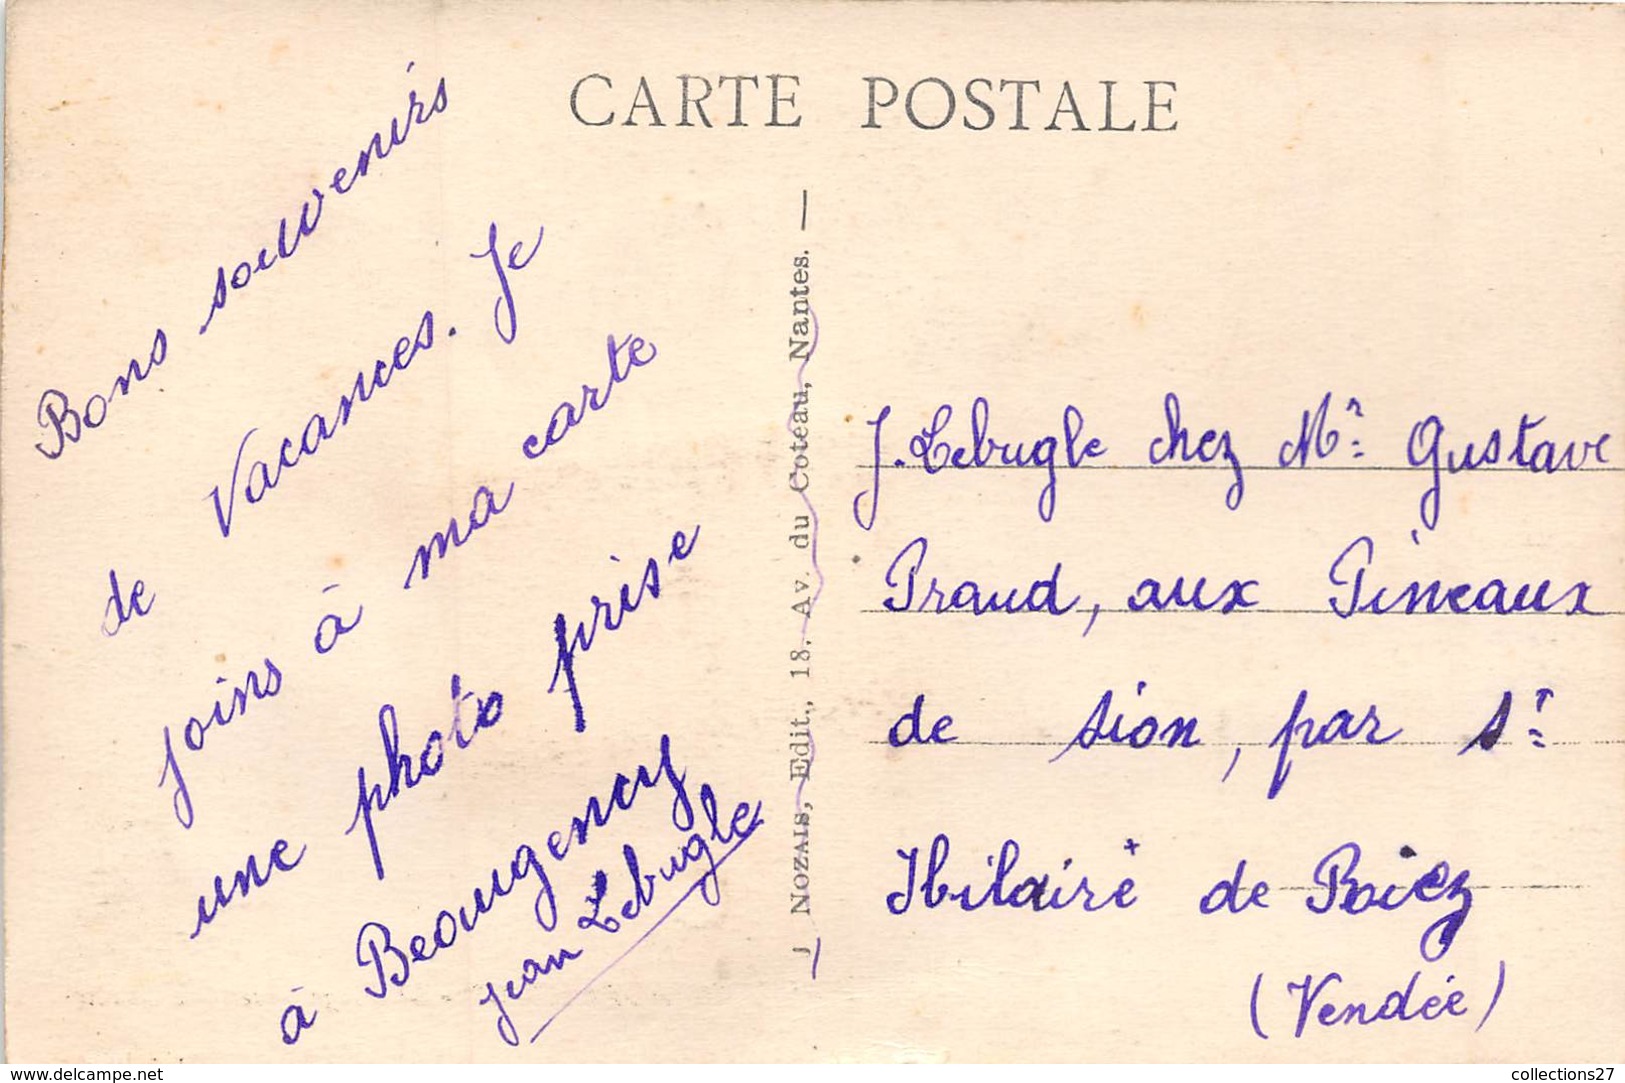 CARTE POSTALE
Bons souvenirs
de Vacances. Je
joins à ma carte
une photo prise
à Beaugency
Jean Lebugle
J NOZAIS, Edit., 18, Av. du Coteau, Nantes. —
J. Lebugle chez Mr: Gustave
Praud, aux Pineaux
de sion, par St:
Hilaire de Roiez
(Vendée)
www.delcampe.net
collections27